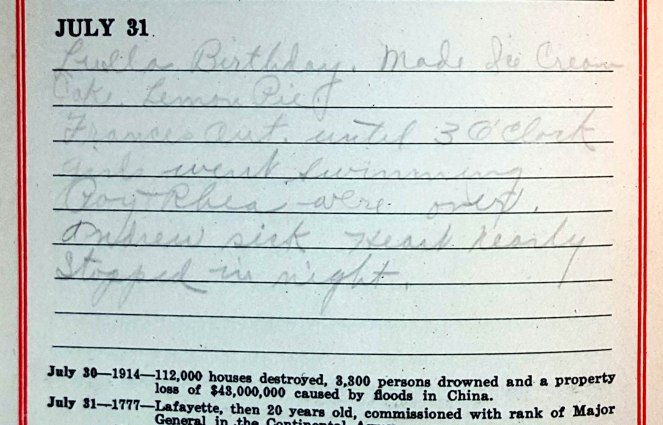 JULY 31
Luella Birthday. Made Ice Cream
Cake Lemon Pie
Frances out until 3 O'Clock
girls went swimming
Roy Rhea were over.
Andrew sick Heart Nearly
Stopped in night.
July 30—1914—112,000 houses destroyed, 3,300 persons drowned and a property
loss of $43,000,000 caused by floods in China.
July 31—1777—Lafayette, then 20 years old, commissioned with rank of Major
General in the Continental